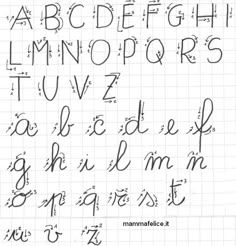 A B C D E F G H I
L M N O P Q R S
T U V Z
a b c d e f
g h i l m n
o p q r s t
u v z
mammafelice.it